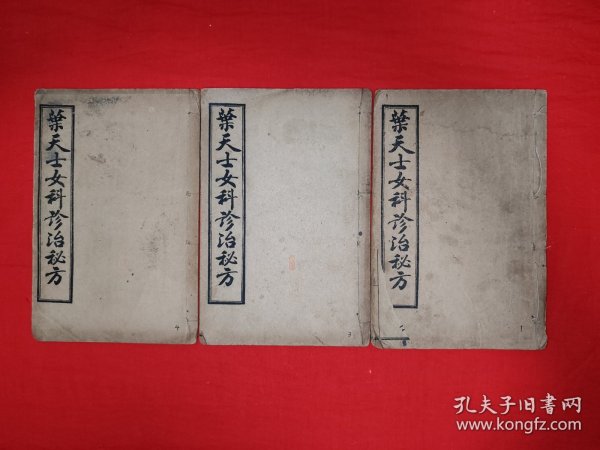 葉天士女科診治秘方
葉天士女科診治秘方
葉天士女科診治秘方
4
3
1
孔夫子旧書网
www.kongfz.com